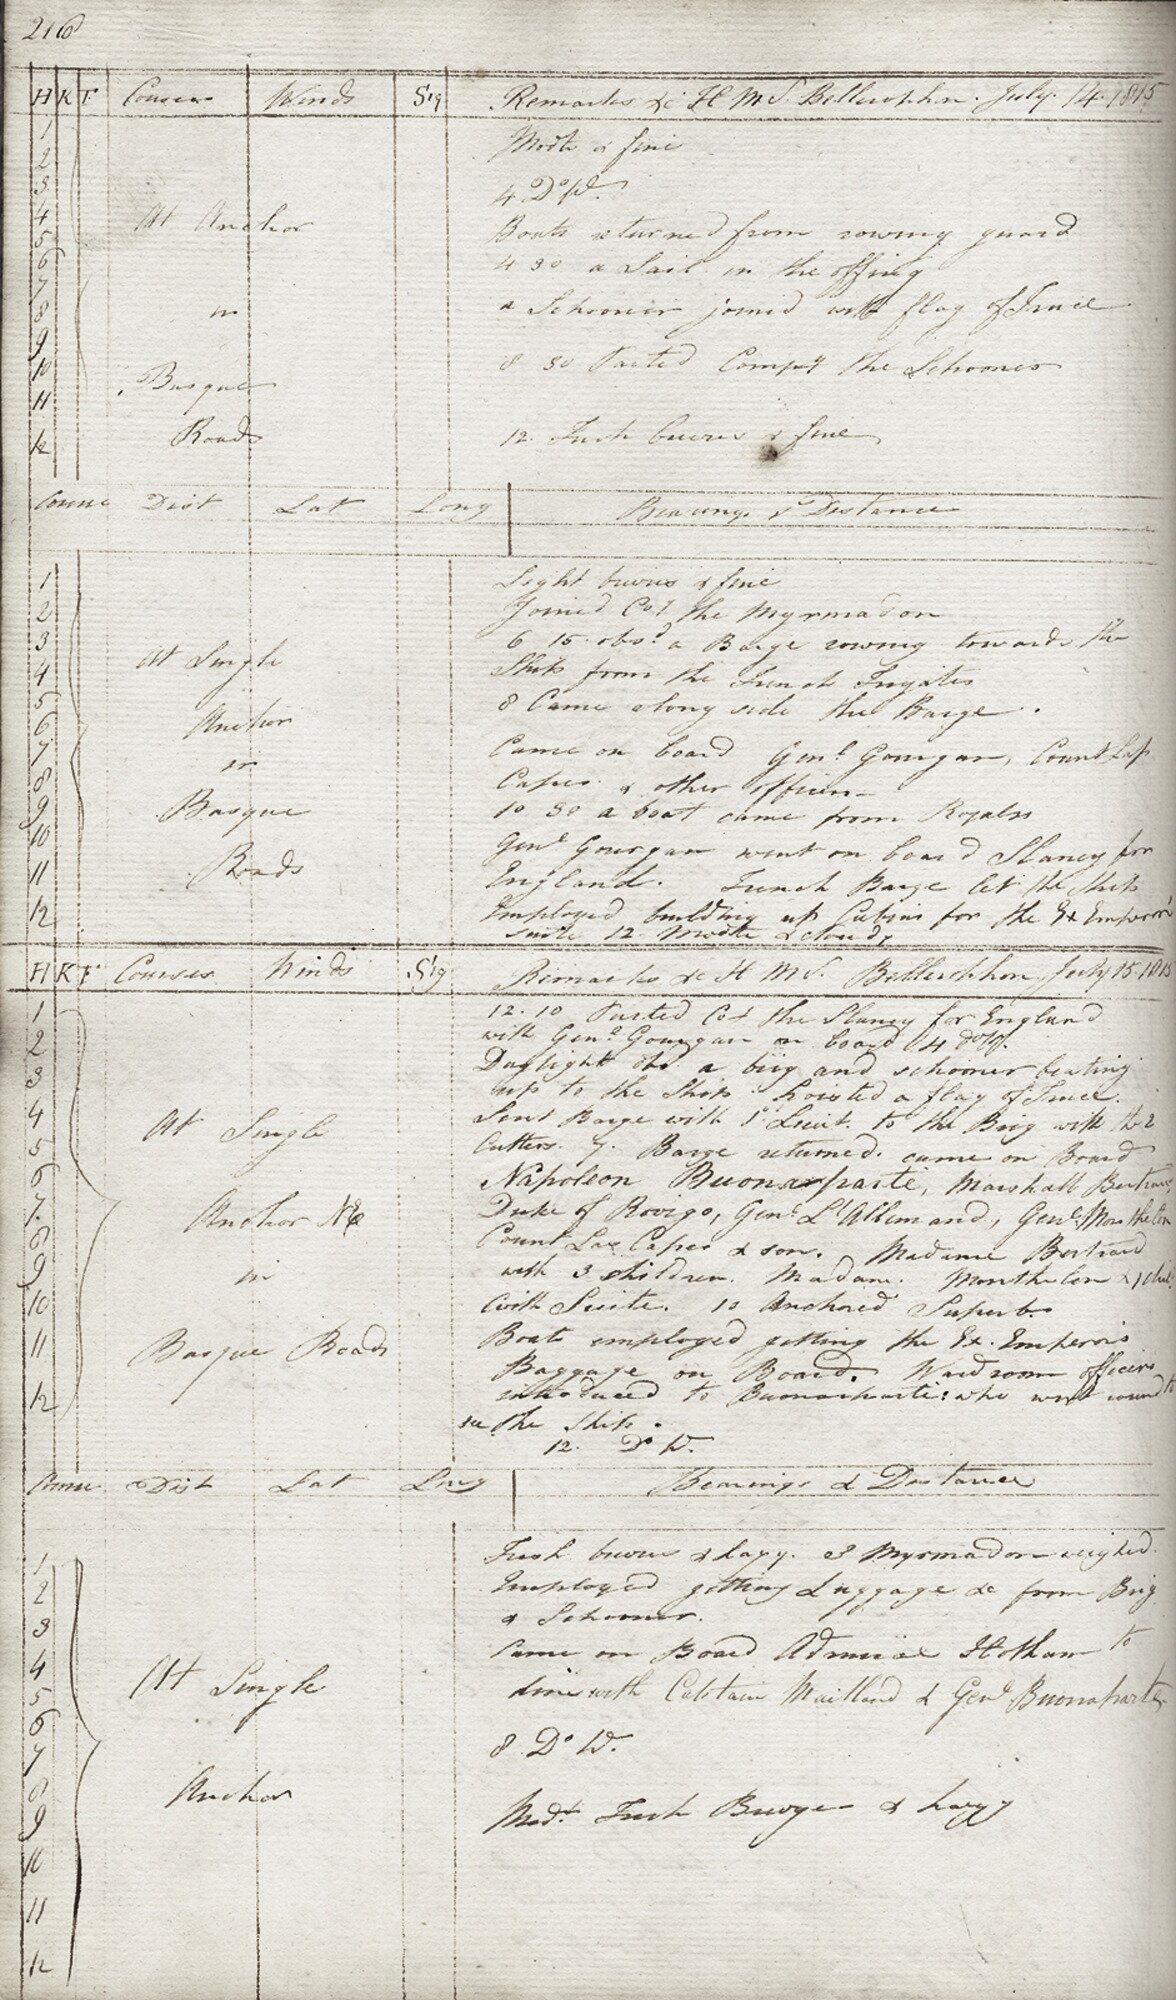 216
H K F Courses Winds Sig Remarks &c H M S. Bellerophon. July. 14. 1815
1
2
3
4
5
6
7
8
9
10
11
12
At Anchor
in
Basque
Roads
Modte & fine
4 Do Wr.
Boats returned from rowing guard
4 30 a Sail in the offing
a Schooner joined with flag of Truce
8 30 Parted Compy the Schooner
12. Fresh breezes & fine
Course Dist Lat Long Bearings & Distance
1
2
3
4
5
6
7
8
9
10
11
12
At Single
Anchor
in
Basque
Roads
Light breezes & fine
Joined Coy the Myrmadon
6 15 obsd a Barge rowing towards the
Ship from the French Frigates
8 Came along side the Barge.
Came on board Genl Gourgan, Count Las
Cases & other officers
10 30 a boat came from Royalss
Genl Gourgan went on board Slaney for
England. French Barge left the Ship
Employed building up Cabins for the Ex Emperor's
suite 12 Modte & cloudy
H K F Courses Winds Sig Remarks &c H M S. Bellerophon July 15 1815
1
2
3
4
5
6
7
8
9
10
11
12
At Single
Anchor
in
Basque Roads
12. 10 Parted Coy the Slaney for England
with Genl Gourgan on board 4 do Wr.
Daylight obs a brig and schooner beating
up to the Ship hoisted a flag of Truce.
Sent Barge with 1st Lieut. to the Brig with the 2
Cutters. 7. Barge returned. came on Board
Napoleon Buonarparte, Marshall Bertrand
Duke of Rovigo, Genl L'Allemand, Genl Monthelon
Count Las Cases & son. Madame Bertrand
with 3 children. Madam. Monthelon & 1 child
with Suite. 10 Anchored Superb.
Boats employed getting the Ex. Emperors
Baggage on Board. Wardroom officers
introduced to Buonarparte: who went round
the Ship.
12. Do Wr.
Course Dist Lat Long Bearings & Distance
1
2
3
4
5
6
7
8
9
10
11
12
At Single
Anchor
Fresh breezes & hazy. 3 Myrmadon weighed.
Employed getting Luggage &c from Brig
& Schooner.
Came on Board Admiral Hotham to
dine with Captain Maitland & Genl Buonaparte
8 Do Wr.
Modt Fresh Breezes & hazy